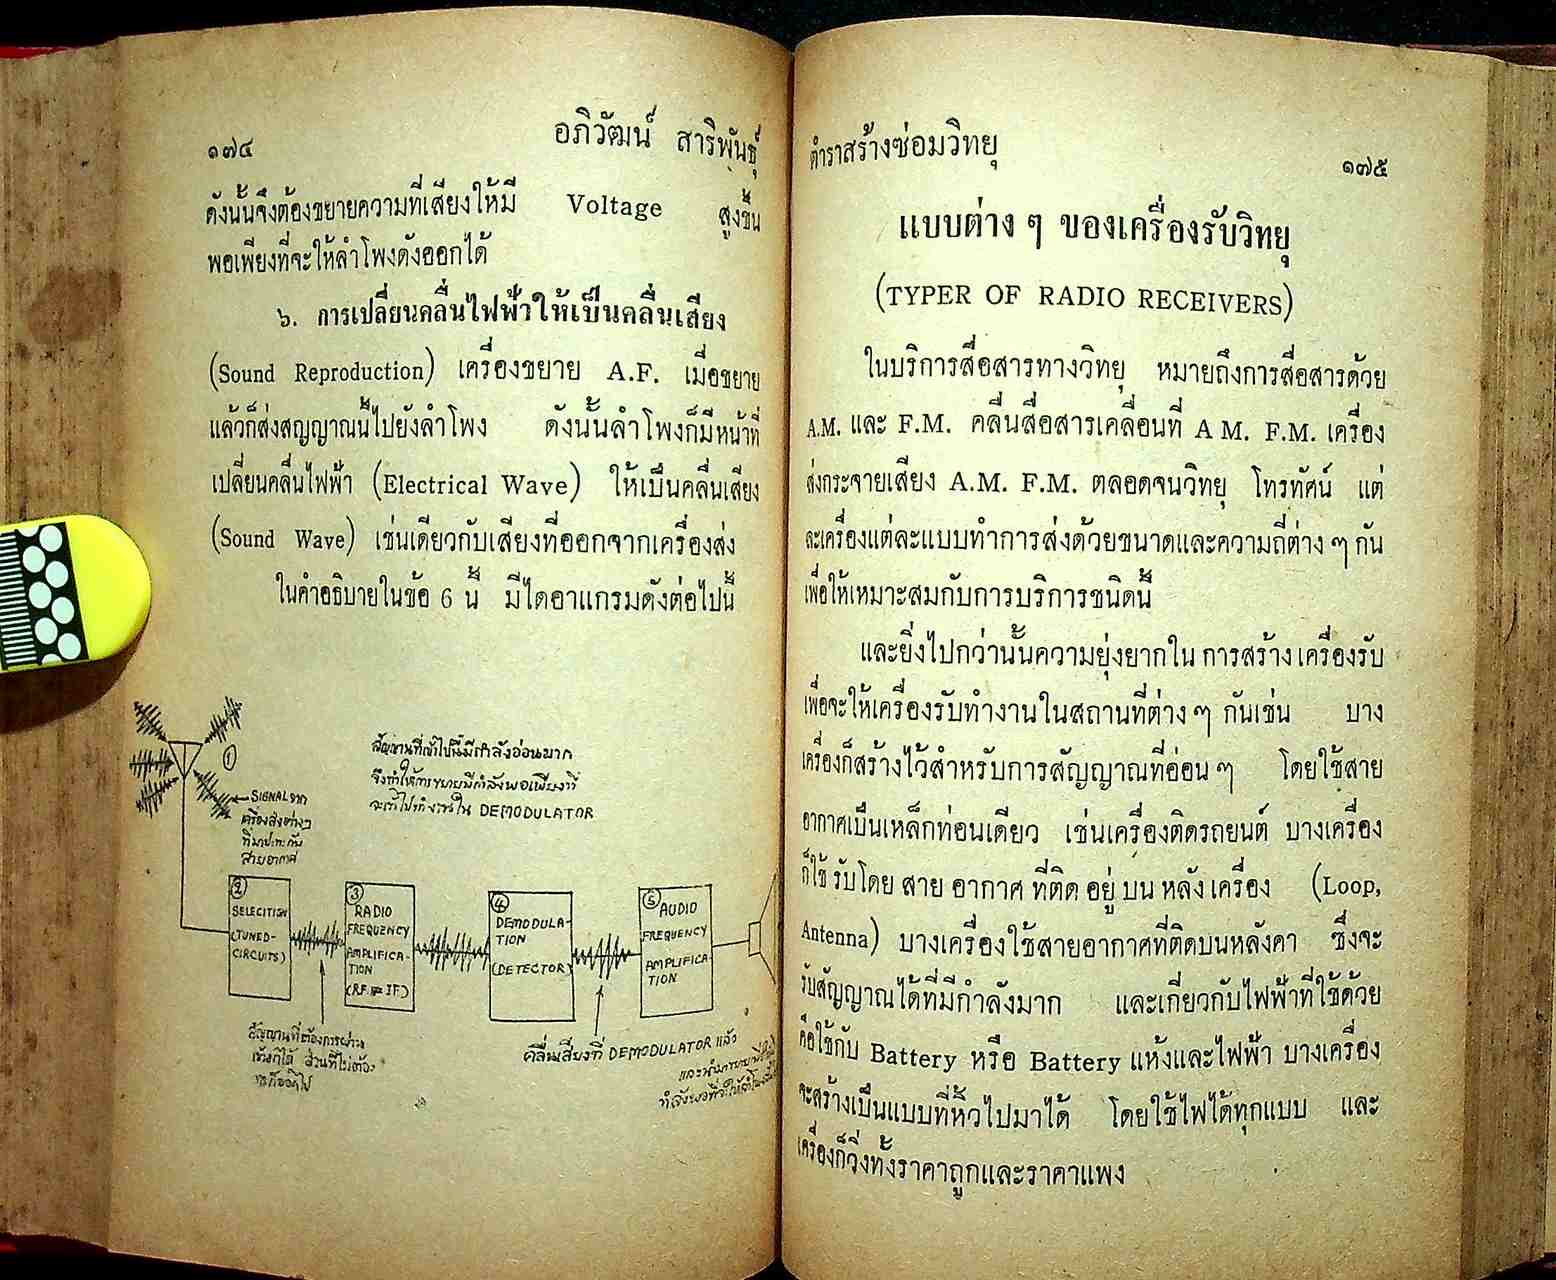 ๑๗๔
อภิวัฒน์ สาริพันธุ์
ดังนั้นจึงต้องขยายความที่เสียงให้มี Voltage สูงขึ้น
พอเพียงที่จะให้ลำโพงดังออกได้
๖. การเปลี่ยนคลื่นไฟฟ้าให้เป็นคลื่นเสียง
(Sound Reproduction) เครื่องขยาย A.F. เมื่อขยาย
แล้วก็ส่งสญญาณนี้ไปยังลำโพง ดังนั้นลำโพงก็มีหน้าที่
เปลี่ยนคลื่นไฟฟ้า (Electrical Wave) ให้เป็นคลื่นเสียง
(Sound Wave) เช่นเดียวกับเสียงที่ออกจากเครื่องส่ง
ในคำอธิบายในข้อ 6 นี้ มีไดอาแกรมดังต่อไปนี้
①
SIGNAL จาก
เครื่องส่งต่างๆ
ที่มาปะทะกับ
สายอากาศ
สัญญานที่เข้าไปนี้มีกำลังอ่อนมาก
จึงทำให้การขยายมีกำลังพอเพียงที่
จะเข้าไปทำงานใน DEMODULATOR
②
SELECITION
(TUNED-
CIRCUITS)
③
RADIO
FREQUENCY
AMPLIFICA-
TION
(RF. IF.)
④
DEMODULA-
TION
(DETECTOR)
⑤
AUDIO
FREQUENCY
AMPLIFICA-
TION
สัญญานที่ต้องการผ่าน
เข้าไปได้ ส่วนที่ไม่ต้อง
คลื่นเสียงที่ DEMODULATOR แล้ว
ตำราสร้างซ่อมวิทยุ
๑๗๕
แบบต่าง ๆ ของเครื่องรับวิทยุ
(TYPER OF RADIO RECEIVERS)
ในบริการสื่อสารทางวิทยุ หมายถึงการสื่อสารด้วย
A.M. และ F.M. คลื่นสื่อสารเคลื่อนที่ A M. F.M. เครื่อง
ส่งกระจายเสียง A.M. F.M. ตลอดจนวิทยุ โทรทัศน์ แต่
ละเครื่องแต่ละแบบทำการส่งด้วยขนาดและความถี่ต่าง ๆ กัน
เพื่อให้เหมาะสมกับการบริการชนิดนี้
และยิ่งไปกว่านั้นความยุ่งยากใน การสร้าง เครื่องรับ
เพื่อจะให้เครื่องรับทำงานในสถานที่ต่าง ๆ กันเช่น บาง
เครื่องก็สร้างไว้สำหรับการสัญญาณที่อ่อน ๆ โดยใช้สาย
อากาศเป็นเหล็กท่อนเดียว เช่นเครื่องติดรถยนต์ บางเครื่อง
ก็ใช้ รับโดย สาย อากาศ ที่ติด อยู่ บน หลัง เครื่อง (Loop,
Antenna) บางเครื่องใช้สายอากาศที่ติดบนหลังคา ซึ่งจะ
รับสัญญาณได้ที่มีกำลังมาก และเกี่ยวกับไฟฟ้าที่ใช้ด้วย
คือใช้กับ Battery หรือ Battery แห้งและไฟฟ้า บางเครื่อง
จะสร้างเป็นแบบที่หิ้วไปมาได้ โดยใช้ไฟได้ทุกแบบ และ
เครื่องก็วิ่งทั้งราคาถูกและราคาแพง